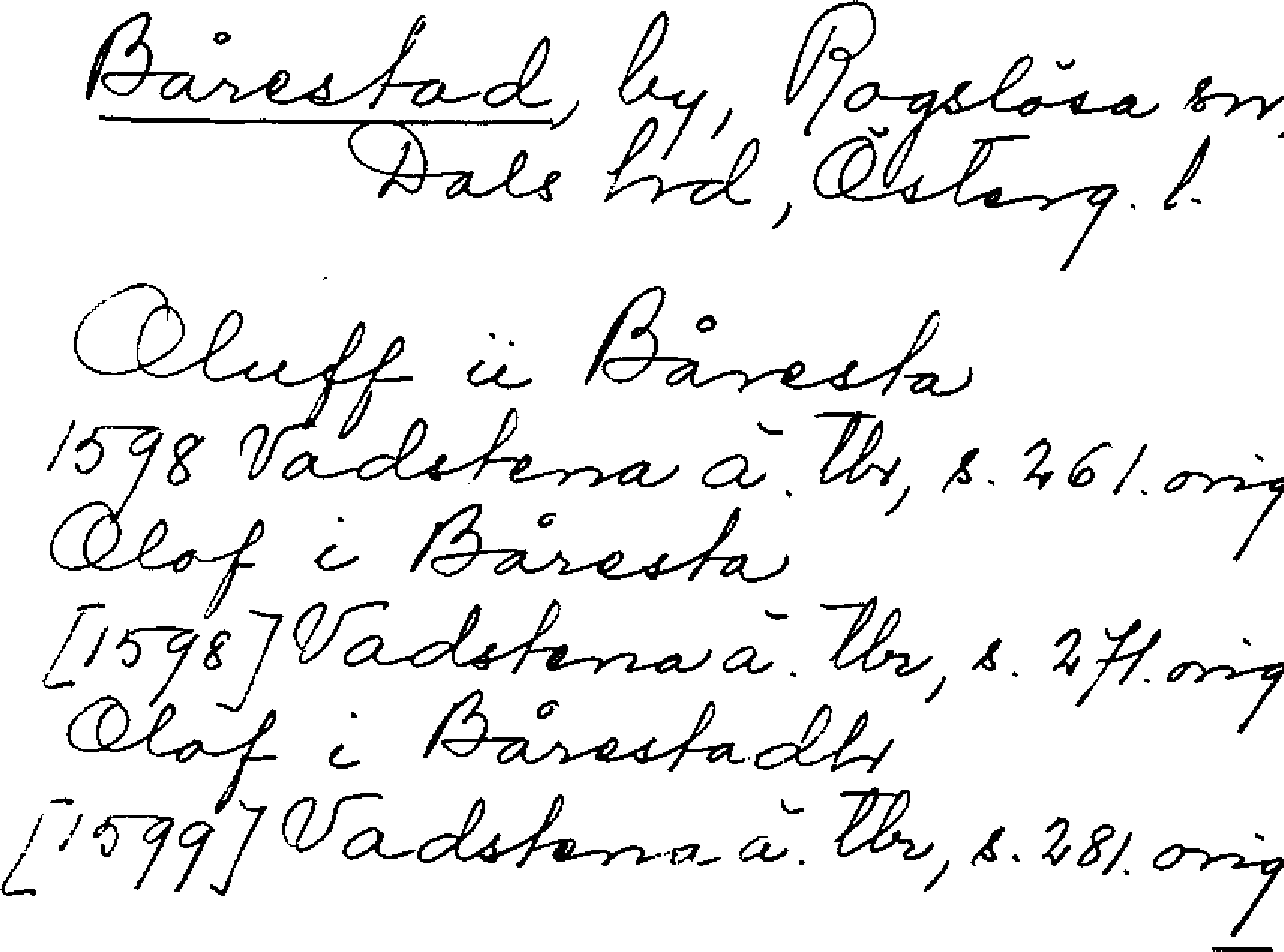 Bårestad, by, Rogslösa sn.
Dals hrd, Österg. l.
Oluff ii Båresta
1598 Vadstena ä. tbr, s. 261. orig
Olof i Båresta
[1598] Vadstena ä. tbr, s. 271. orig
Olåf i Bårestadh
[1599] Vadstena ä. tbr, s. 281. orig